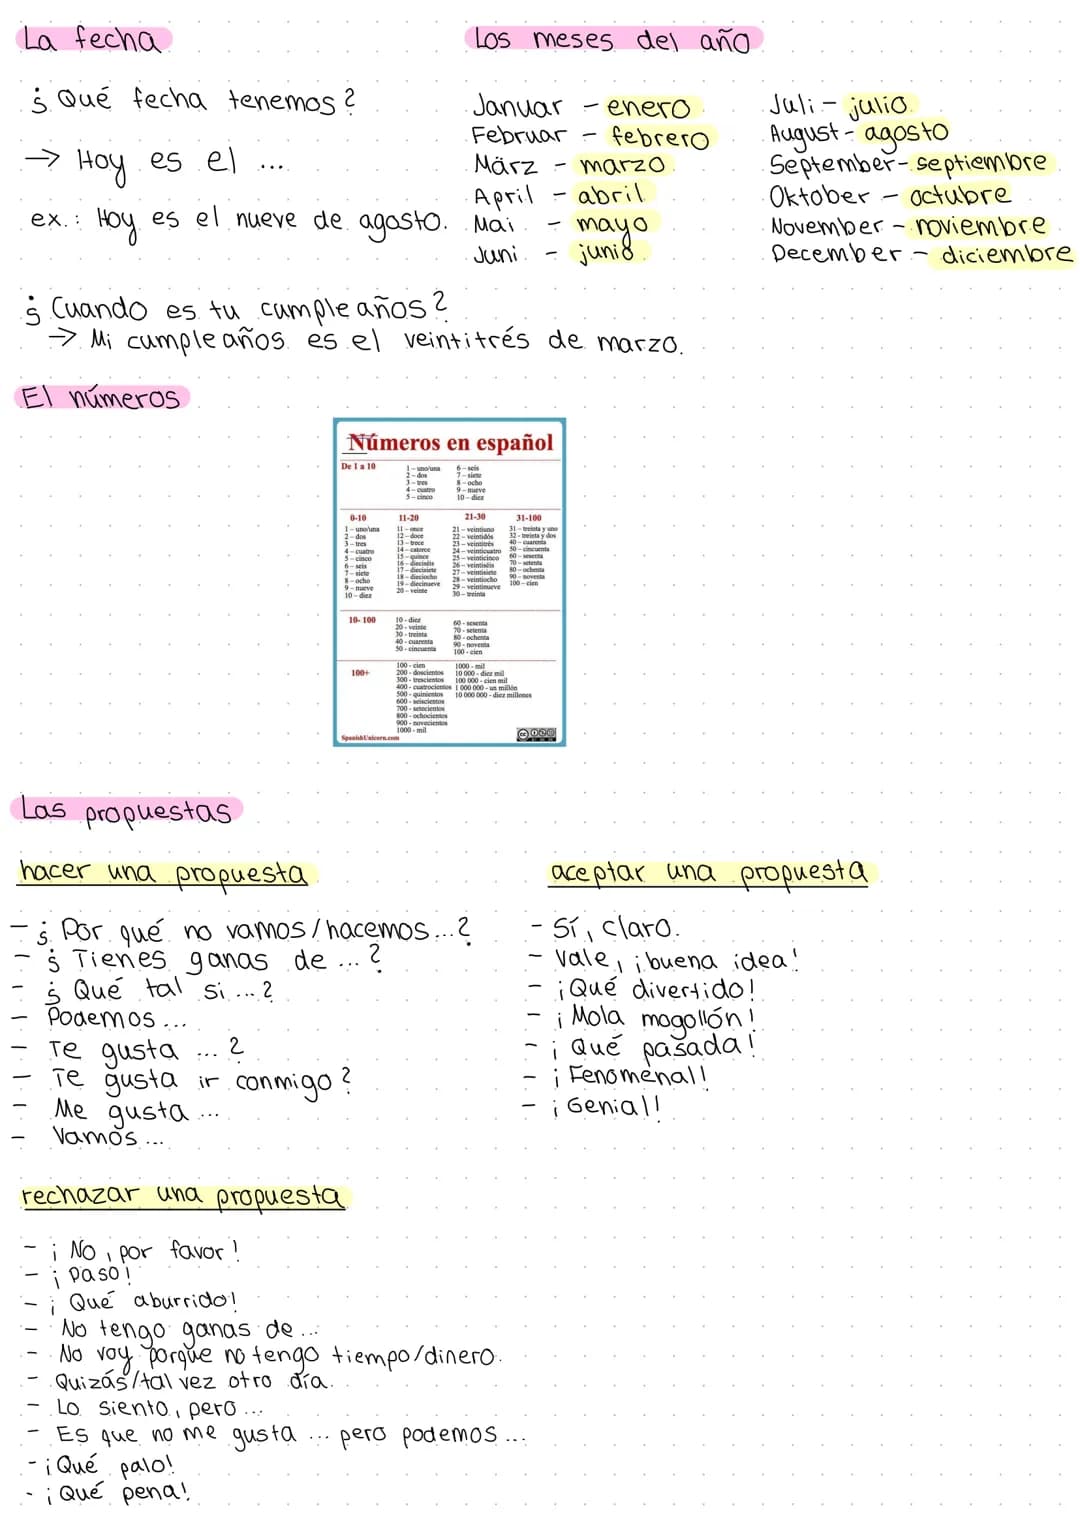 La fecha
¿Qué fecha tenemos?
→ Hoy es el ...
ex.: Hoy es el nueve de agosto.
Los meses del año
Januar - enero
Februar - febrero
März - marzo
April - abril
Mai - mayo
Juni - junio
Juli - julio
August - agosto
September - septiembre
Oktober - octubre
November - noviembre
December - diciembre
¿Cuando es tu cumpleaños?
→ Mi cumpleaños es el veintitrés de marzo.
El números
Números en español
De 1 a 10
1 – uno/una
2 – dos
3 – tres
4 – cuatro
5 – cinco
6 – seis
7 – siete
8 – ocho
9 – nueve
10 – diez
0-10
1 – uno/una
2 – dos
3 – tres
4 – cuatro
5 – cinco
6 – seis
7 – siete
8 – ocho
9 – nueve
10 – diez
11-20
11 – once
12 – doce
13 – trece
14 – catorce
15 – quince
16 – dieciséis
17 – diecisiete
18 – dieciocho
19 – diecinueve
20 – veinte
21-30
21 – veintiuno
22 – veintidós
23 – veintitrés
24 – veinticuatro
25 – veinticinco
26 – veintiséis
27 – veintisiete
28 – veintiocho
29 – veintinueve
30 – treinta
31-100
31 – treinta y uno
32 - treinta y dos
40 – cuarenta
50 – cincuenta
60 – sesenta
70 – setenta
80 – ochenta
90 – noventa
100 – cien
10- 100
10 - diez
20 - veinte
30 - treinta
40 - cuarenta
50 - cincuenta
60 - sesenta
70 - setenta
80 - ochenta
90 - noventa
100 - cien
100+
100 - cien
200 - doscientos
300 - trescientos
400 - cuatrocientos
500 - quinientos
600 - seiscientos
700 - setecientos
800 - ochocientos
900 - novecientos
1000 - mil
1000 - mil
10 000 - diez mil
100 000 - cien mil
1 000 000 - un millón
10 000 000 - diez millones
SpanishUnicorn.com
Las propuestas
hacer una propuesta
- ¿Por qué no vamos/hacemos...?
- ¿Tienes ganas de ...?
- ¿Qué tal si ...?
- Podemos...
- Te gusta ... ?
- Te gusta ir conmigo?
- Me gusta ...
- Vamos ...
aceptar una propuesta
- Sí, claro.
- Vale, ¡buena idea!
- ¡Qué divertido!
- ¡Mola mogollón!
- ¡Qué pasada!
- ¡Fenomenal!
- ¡Genial!
rechazar una propuesta
- ¡No, por favor!
- ¡Paso!
- ¡Qué aburrido!
- No tengo ganas de ...
- No voy porque no tengo tiempo/dinero.
- Quizás/tal vez otro día.
- Lo siento, pero ...
- Es que no me gusta ... pero podemos ...
- ¡Qué palo!
- ¡Qué pena!